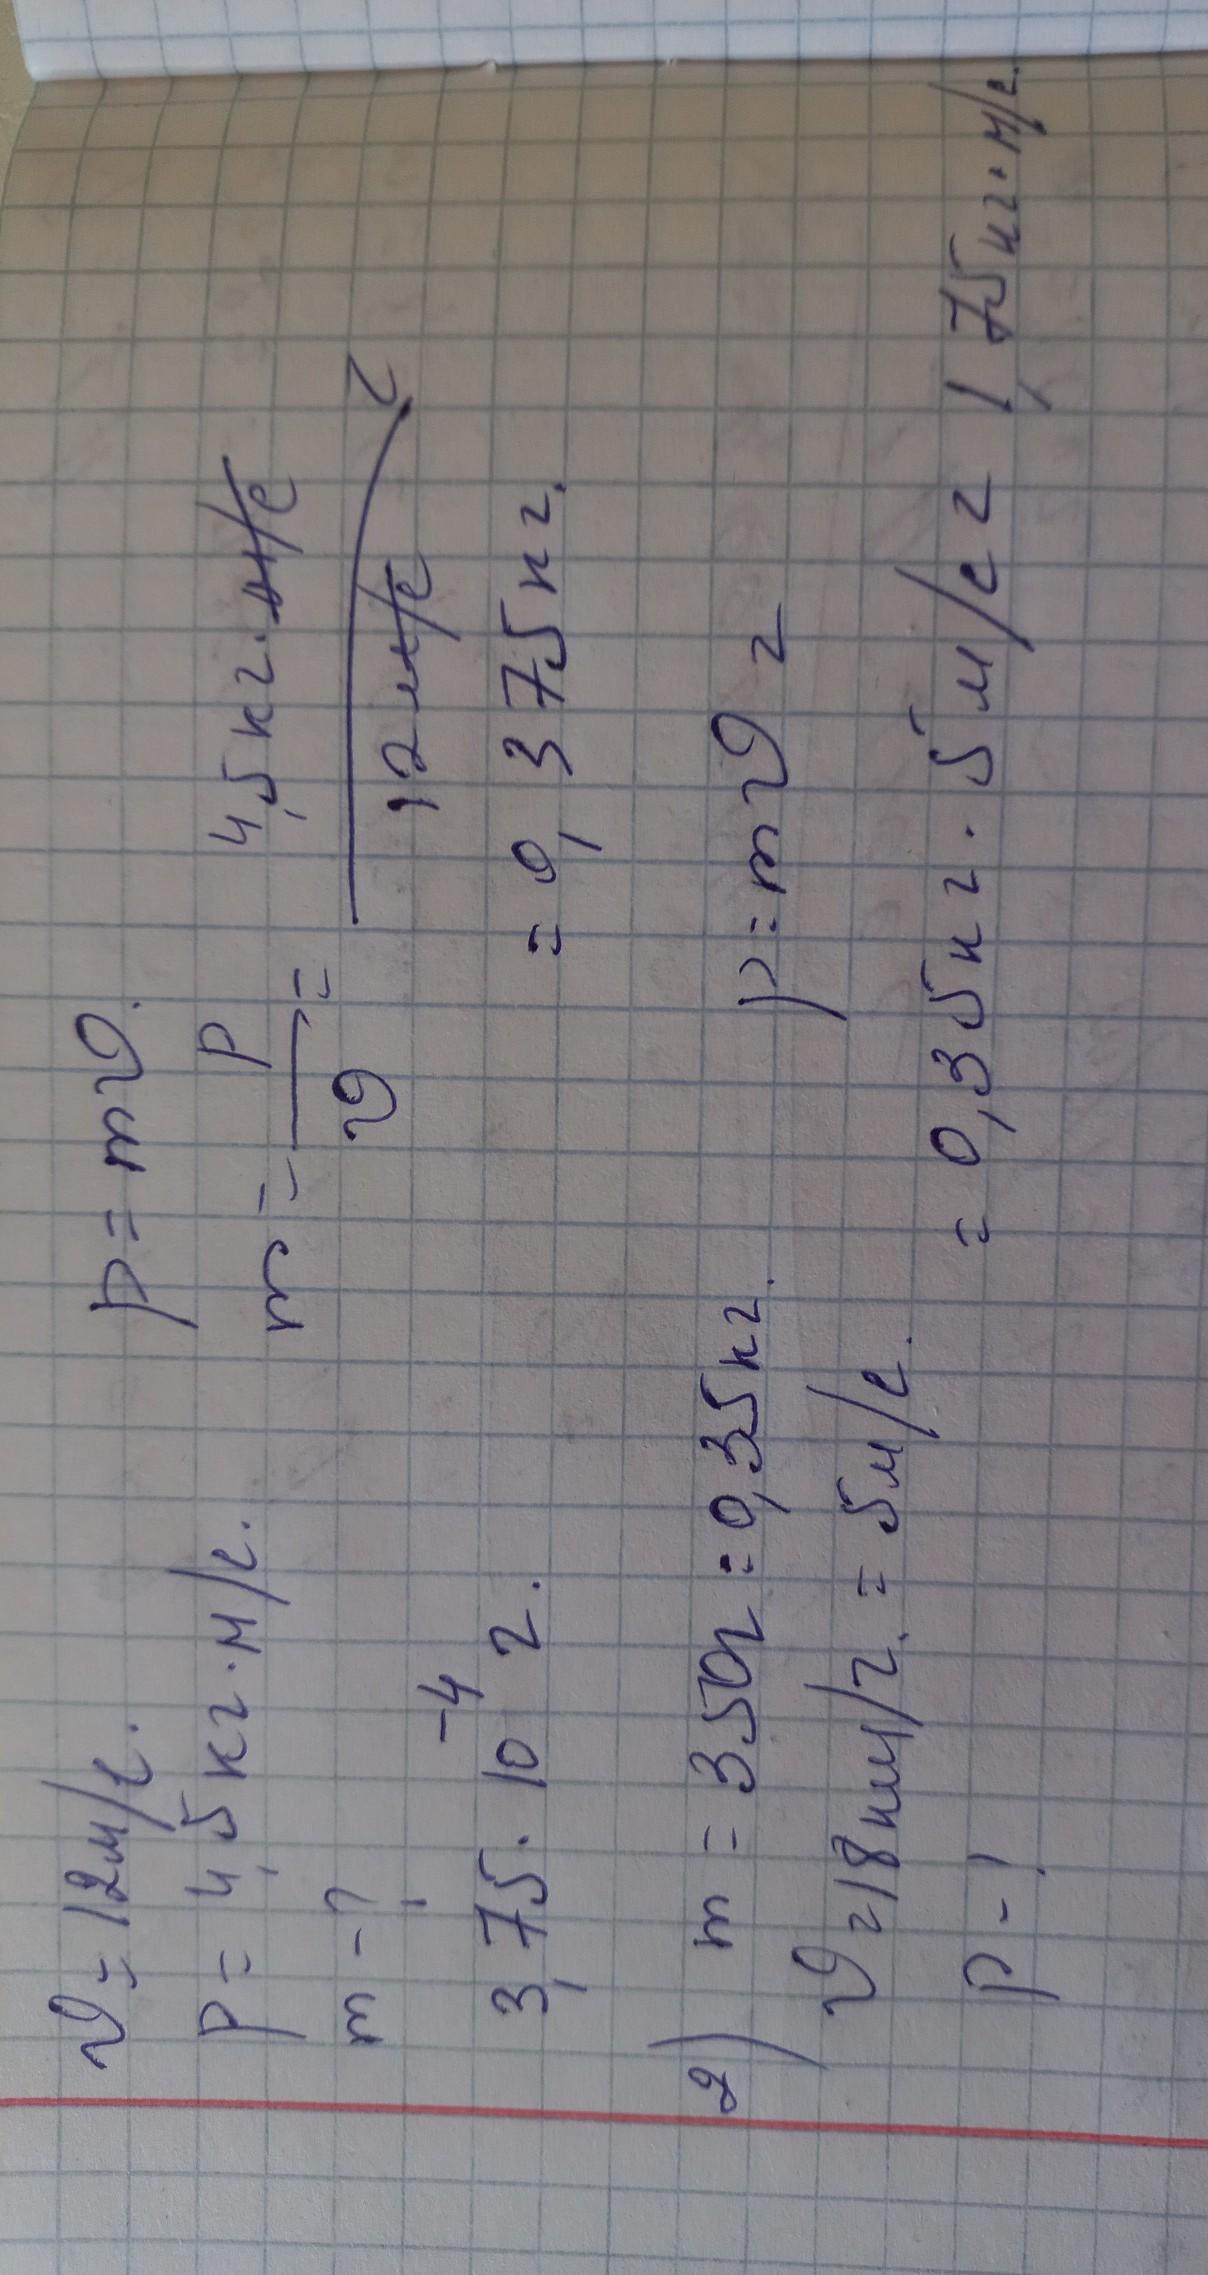 v = 12 м/с.
p = mv.
p = 4,5 кг · м/с.
m = p/v = 4,5 кг · м/с / 12 м/с =
m - ?
= 0,375 кг.
3,75 · 10^-4 г.
2) m = 350г = 0,35 кг.
p = mv =
v = 18 км/ч. = 5 м/с.
p - ?
= 0,35 кг · 5 м/с = 1,75 кг · м/с.